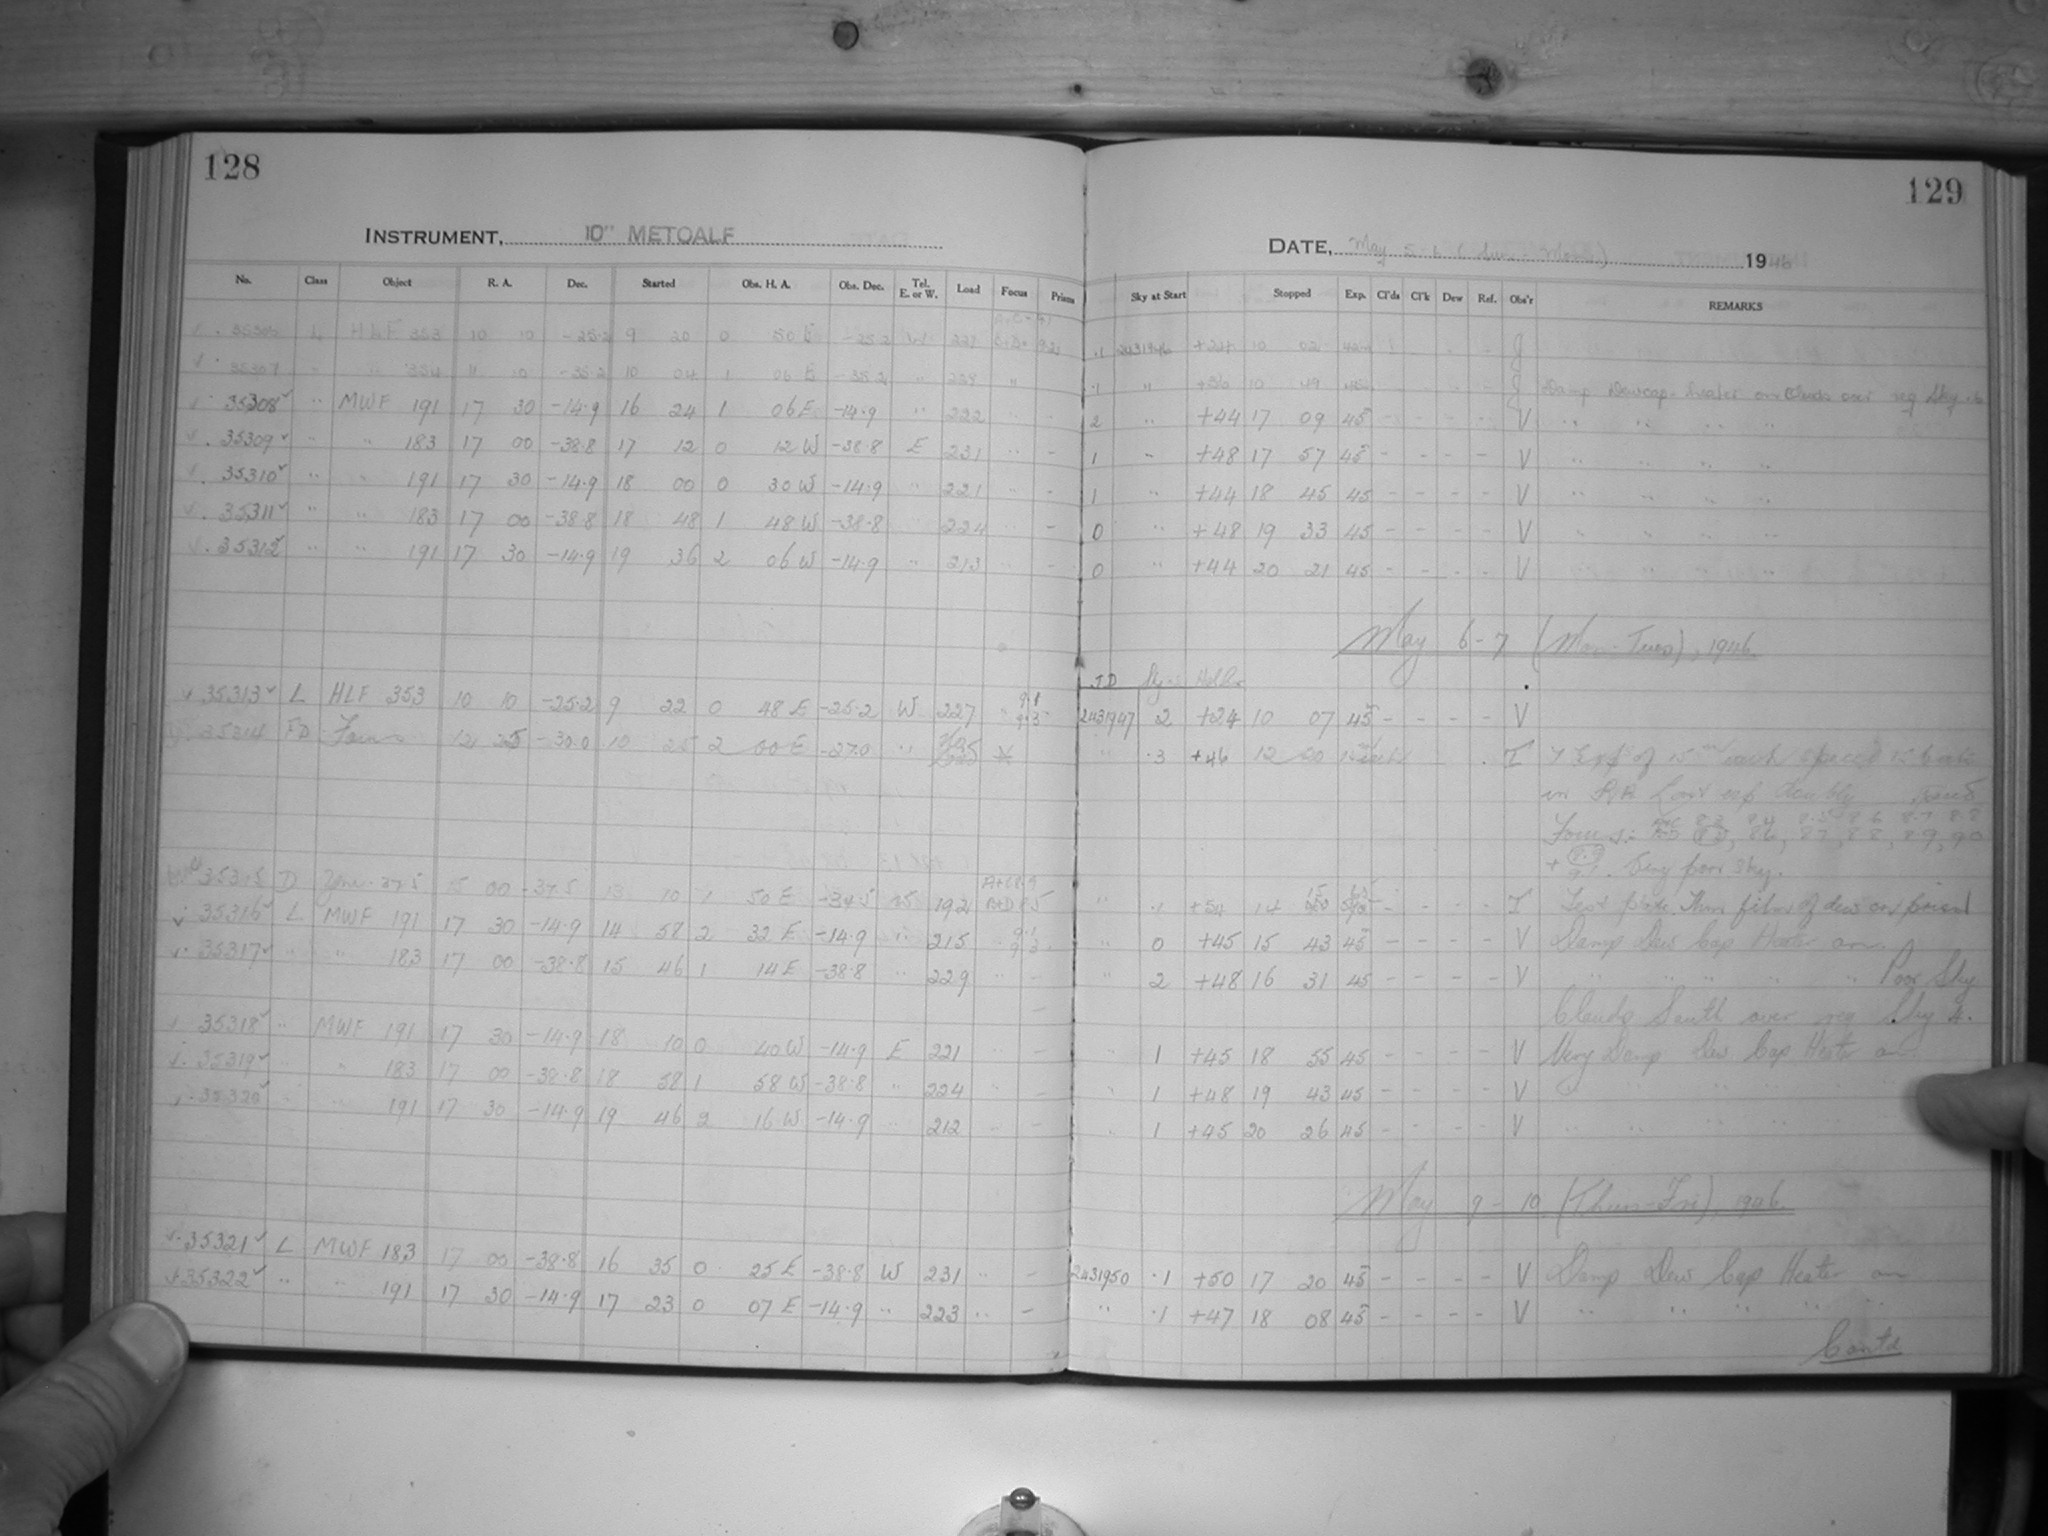 128
INSTRUMENT, 10" METCALF
No. Class Object R. A. Dec. Started Obs. H. A. Obs. Dec. Tel. E. or W. Load Focus Prisms
L HLF 353 10 10 -25.2 9 20 0 50 E -25.2 W 227
35307 " " 354 11 10 -35.2 10 04 1 06 E -35.2 " "
35308 " MWF 191 17 30 -14.9 16 24 1 06 E -14.9 " 222
35309 " " 183 17 00 -38.8 17 12 0 12 W -38.8 E 231 " -
35310 " " 191 17 30 -14.9 18 00 0 30 W -14.9 " 221 " -
35311 " " 183 17 00 -38.8 18 48 1 48 W -38.8 224 " -
35312 " " 191 17 30 -14.9 19 36 2 06 W -14.9 " 213 " -
35313 L HLF 353 10 10 -25.2 9 22 0 48 E -25.2 W 227
35314 FD Focus 12 25 -30.0 10 25 2 00 E -27.0 "
35315 D 15 00 -37.5 13 10 1 50 E 192
35316 L MWF 191 17 30 -14.9 14 58 2 32 E -14.9 " 215
35317 " " 183 17 00 -38.8 15 46 1 14 E -38.8 " 229 " -
35318 " MWF 191 17 30 -14.9 18 10 0 40 W -14.9 E 221 " -
35319 " 183 17 00 -38.8 18 58 1 58 W -38.8 " 224 " -
35320 " " 191 17 30 -14.9 19 46 2 16 W -14.9 " 212 " -
35321 L MWF 183 17 00 -38.8 16 35 0 25 E -38.8 W 231 " -
35322 " " 191 17 30 -14.9 17 23 0 07 E -14.9 " 223 " -
129
DATE, May 5-6 1946
Sky at Start Stopped Exp. Cl'ds Cl'k Dew Ref. Obs'r REMARKS
.1 2431946 +24 10 02 J
.1 " +36 10 49 J Damp Dewcap heater on Clouds over reg Sky
2 " +44 17 09 45 V " " " "
1 " +48 17 57 45 - - - - V " " " "
1 " +44 18 45 45 - - - - V " " " "
0 " +48 19 33 45 - - - - V " " " "
0 " +44 20 21 45 - - - - V " " " "
May 6-7 (Mon-Tues), 1946
JD
2431947 2 +24 10 07 45 - - - - V
" .3 +46 12 T 7 Exp of 15 each spaced
in RA Last exp doubly
Focus:
Very poor sky.
" .1 +54 14 - - - - T Test plate. Thin film of dew on prism
" 0 +45 15 43 45 - - - - V Damp Dew Cap Heater on
" 2 +48 16 31 45 - - - - V " " " " " Poor Sky
Clouds South over reg Sky 4.
" 1 +45 18 55 45 - - - - V Very Damp Dew Cap Heater on
" 1 +48 19 43 45 - - - - V " " " " "
" 1 +45 20 26 45 - - - - V " " " " "
May 9-10 (Thurs-Fri), 1946
2431950 .1 +50 17 20 45 - - - - V Damp Dew Cap Heater on
" .1 +47 18 08 45 - - - - V " " " " "
Contd